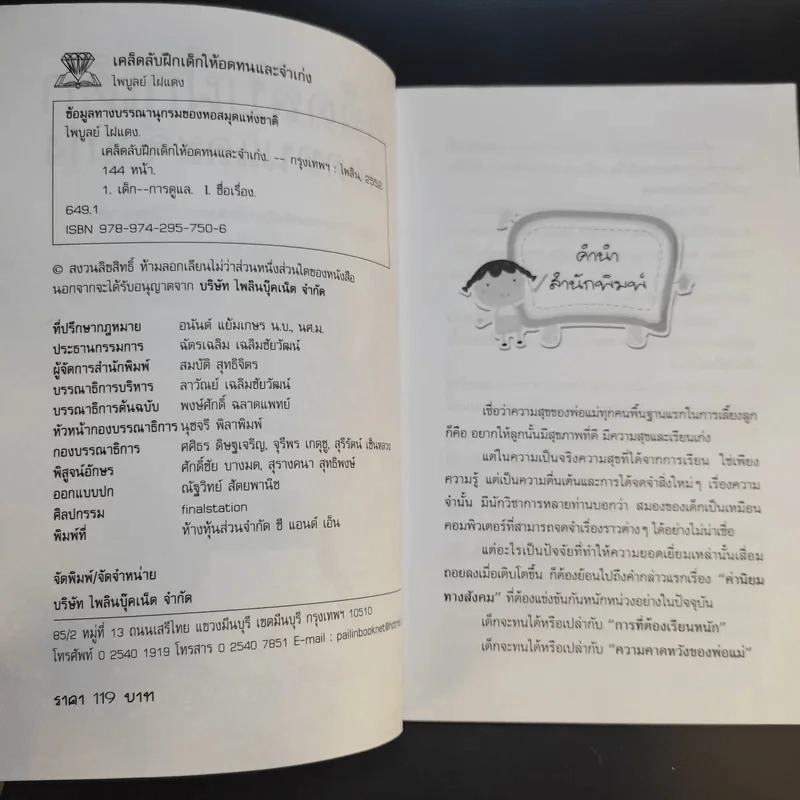 เคล็ดลับฝึกเด็กให้อดทนและจำเก่ง
ไพบูลย์ ไฝแดง
ข้อมูลทางบรรณานุกรมของหอสมุดแห่งชาติ
ไพบูลย์ ไฝแดง.
เคล็ดลับฝึกเด็กให้อดทนและจำเก่ง. -- กรุงเทพฯ : ไพลิน, 2552
144 หน้า.
1. เด็ก--การดูแล. I. ชื่อเรื่อง.
649.1
ISBN 978-974-295-750-6
© สงวนลิขสิทธิ์ ห้ามลอกเลียนไม่ว่าส่วนหนึ่งส่วนใดของหนังสือ
นอกจากจะได้รับอนุญาตจาก บริษัท ไพลินบุ๊คเน็ต จำกัด
ที่ปรึกษากฎหมาย อนันต์ แย้มเกษร น.บ., นศ.ม.
ประธานกรรมการ ฉัตรเฉลิม เฉลิมชัยวัฒน์
ผู้จัดการสำนักพิมพ์ สมบัติ สุทธิจิตร
บรรณาธิการบริหาร ลาวัณย์ เฉลิมชัยวัฒน์
บรรณาธิการต้นฉบับ พงษ์ศักดิ์ ฉลาดแพทย์
หัวหน้ากองบรรณาธิการ นุชจรี พิลาพิมพ์
กองบรรณาธิการ ศศิธร ดิษฐเจริญ, จุรีพร เกตุชู, สุรีรัตน์
พิสูจน์อักษร ศักดิ์ชัย บางมด, สุรางคนา สุทธิพงษ์
ออกแบบปก ณัฐวิทย์ สัตยพานิช
ศิลปกรรม finalstation
พิมพ์ที่ ห้างหุ้นส่วนจำกัด ซี แอนด์ เอ็น
จัดพิมพ์/จัดจำหน่าย
บริษัท ไพลินบุ๊คเน็ต จำกัด
85/2 หมู่ที่ 13 ถนนเสรีไทย แขวงมีนบุรี เขตมีนบุรี กรุงเทพฯ 10510
โทรศัพท์ 0 2540 1919 โทรสาร 0 2540 7851 E-mail :
ราคา 119 บาท
คำนำ
สำนักพิมพ์
เชื่อว่าความสุขของพ่อแม่ทุกคนพื้นฐานแรกในการเลี้ยงลูก
ก็คือ อยากให้ลูกนั้นมีสุขภาพที่ดี มีความสุขและเรียนเก่ง
แต่ในความเป็นจริงความสุขที่ได้จากการเรียน ใช่เพียง
ความรู้ แต่เป็นความตื่นเต้นและการได้จดจำสิ่งใหม่ๆ เรื่องความ
จำนั้น มีนักวิชาการหลายท่านบอกว่า สมองของเด็กเป็นเหมือน
คอมพิวเตอร์ที่สามารถจดจำเรื่องราวต่างๆ ได้อย่างไม่น่าเชื่อ
แต่อะไรเป็นปัจจัยที่ทำให้ความยอดเยี่ยมเหล่านั้นเสื่อม
ถอยลงเมื่อเติบโตขึ้น ก็ต้องย้อนไปถึงคำกล่าวแรกเรื่อง “ค่านิยม
ทางสังคม” ที่ต้องแข่งขันกันหนักหน่วงอย่างในปัจจุบัน
เด็กจะทนได้หรือเปล่ากับ “การที่ต้องเรียนหนัก”
เด็กจะทนได้หรือเปล่ากับ “ความคาดหวังของพ่อแม่”